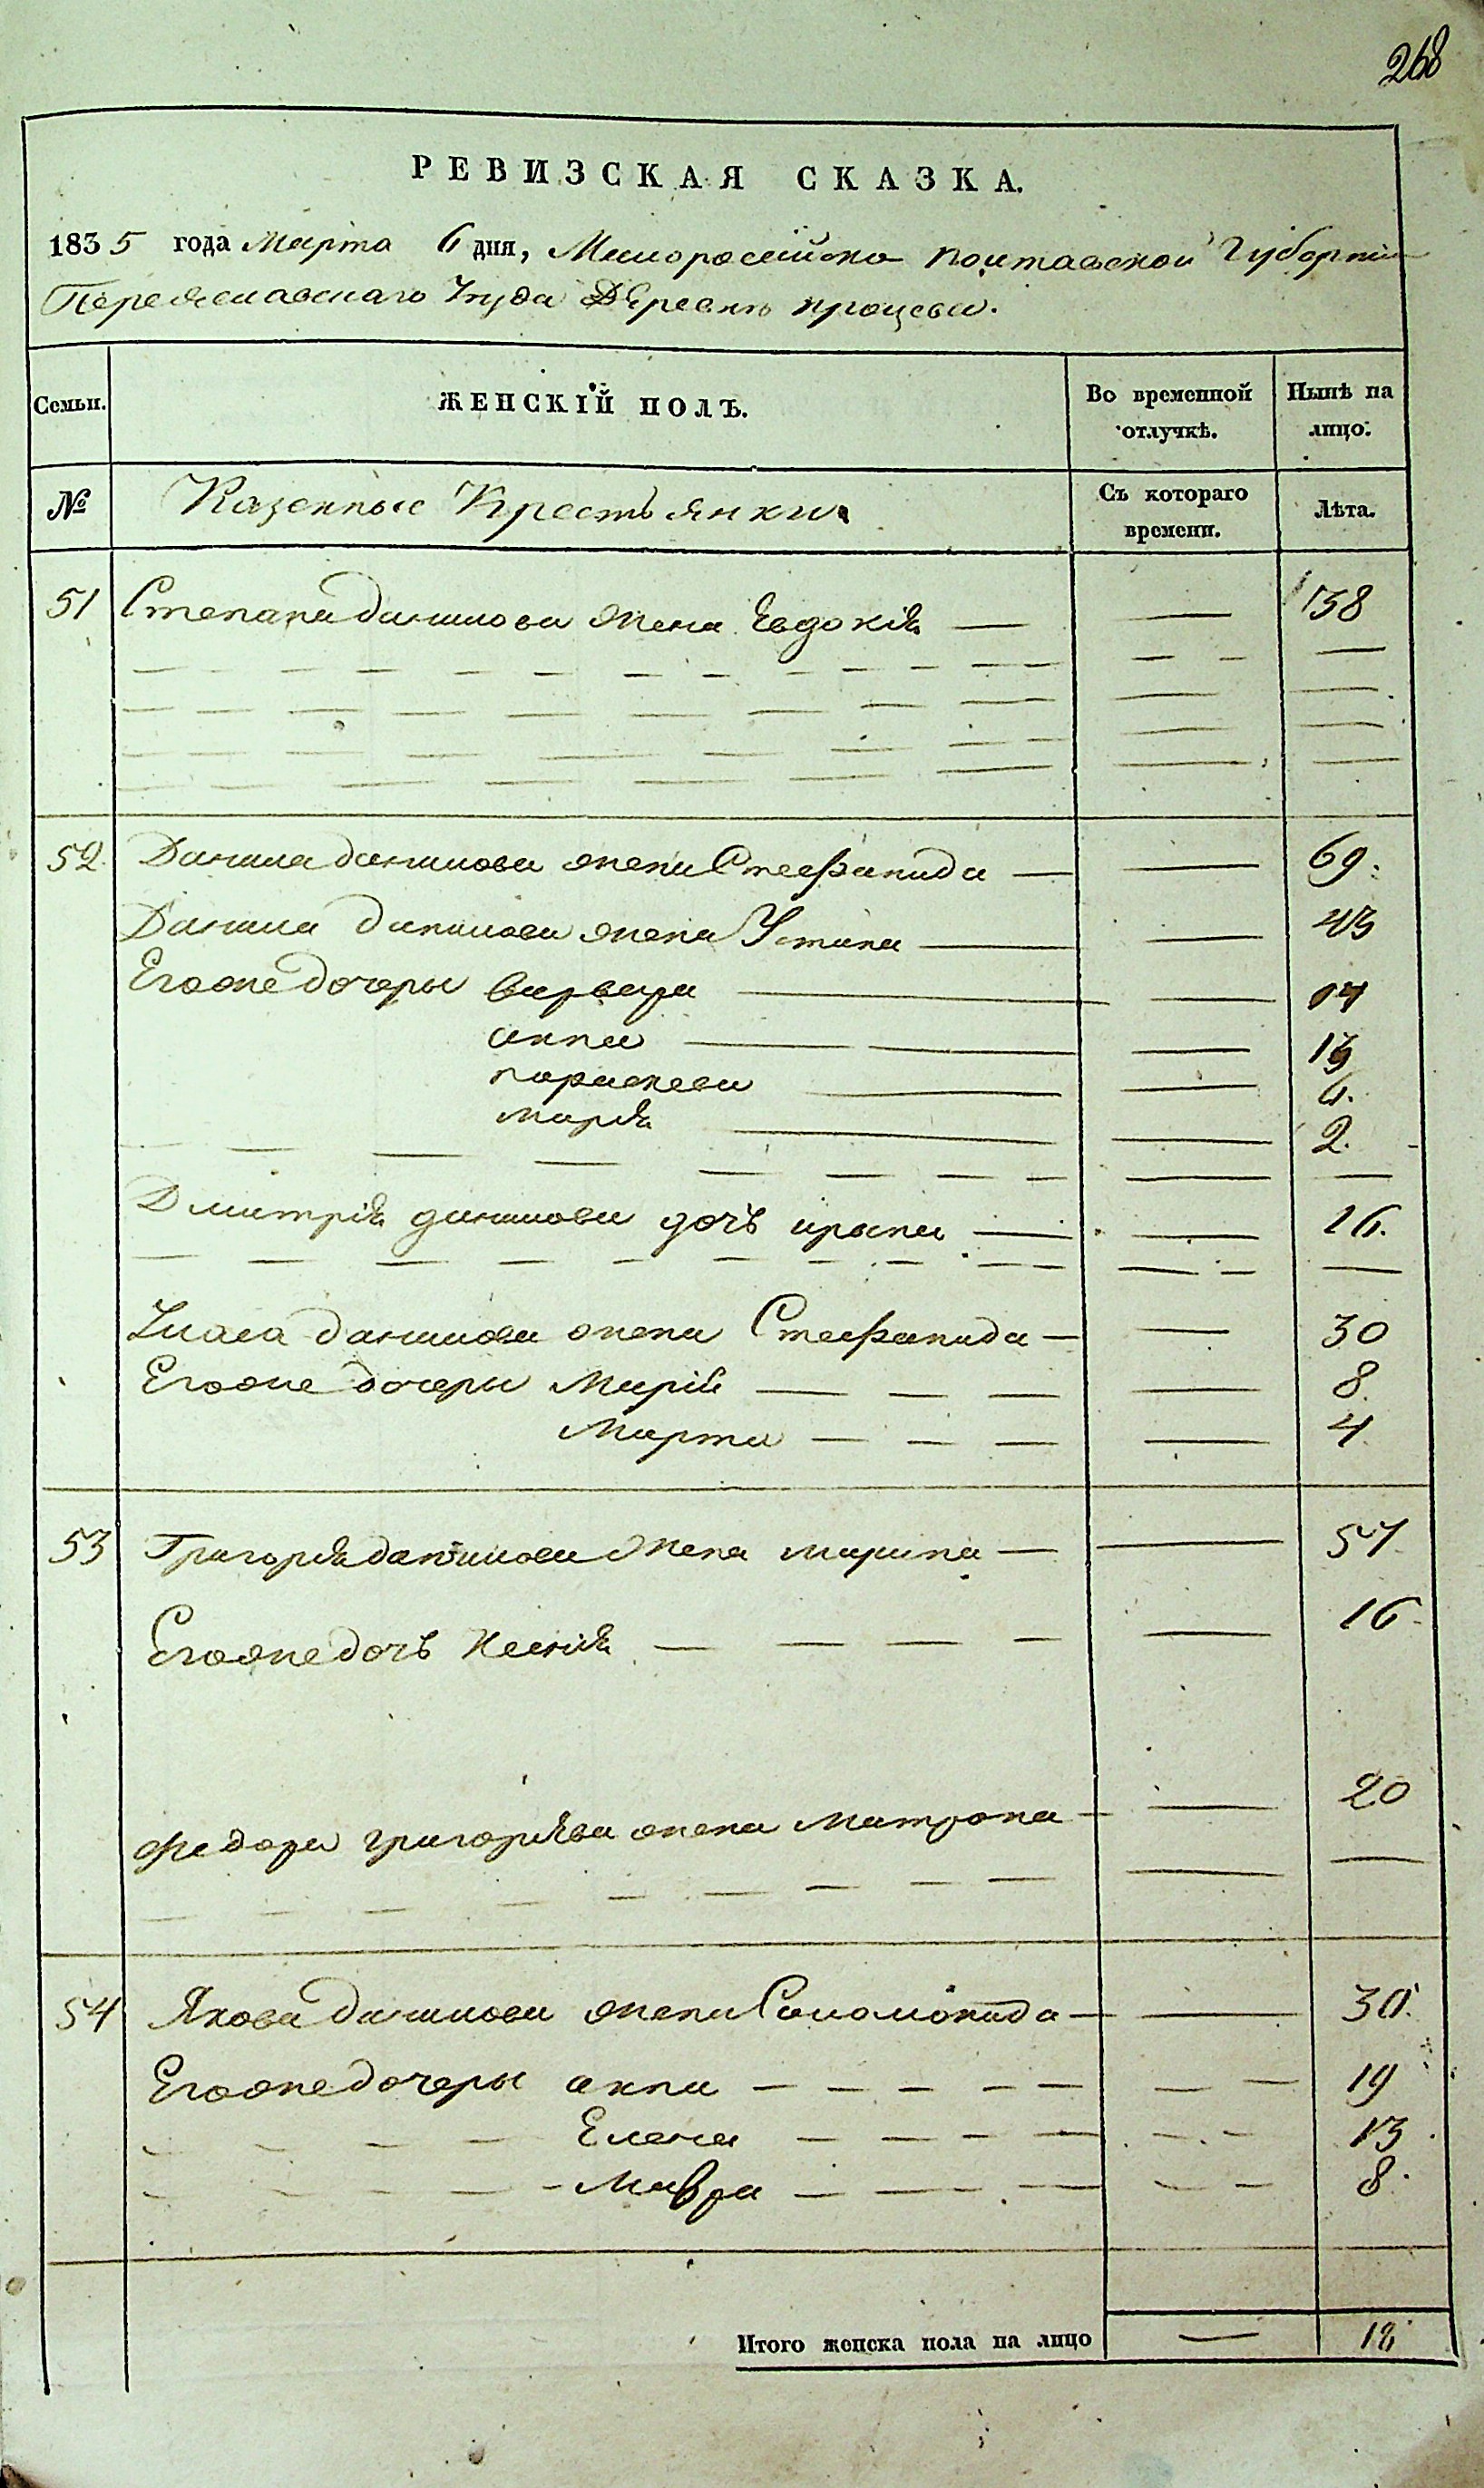 268
РЕВИЗСКАЯ СКАЗКА.
1835 года Марта 6 дня, Малоросейско Полтавской Губерніи
Переяславскаго Уезда Деревни процева.
Семьи. ЖЕНСКІЙ ПОЛЪ. Во временной отлучкѣ. Нынѣ на лицо.
№ Казенные Крестьянки Съ котораго времени. Лѣта.
51 Степана данилова жена Евдокія — — 58
52. Данила данилова жена Стефанида — — 69.
Данила данилова жена Устина — — 43
Егоже дочеры варвара — — 14
анна — —
параскева — — 6.
марія — — 2.
Дмитрія данилова дочь ирына — — 16.
Власа данилова жена Стефанида — — 30
Егоже дочеры Марія — — — — 8.
Марта — — — — 4
53 Григорія данилова жена марина — —
Егоже дочь Ксенія — — — — — 16.
Федора григоріева жена матрона — — 20
54 Якова данилова жена Соломонида — — 30.
Егоже дочеры анна — — — — — — — 19
Елена — — — — — — 13.
Мавра — — — — — 8.
Итого женска пола на лицо — 18